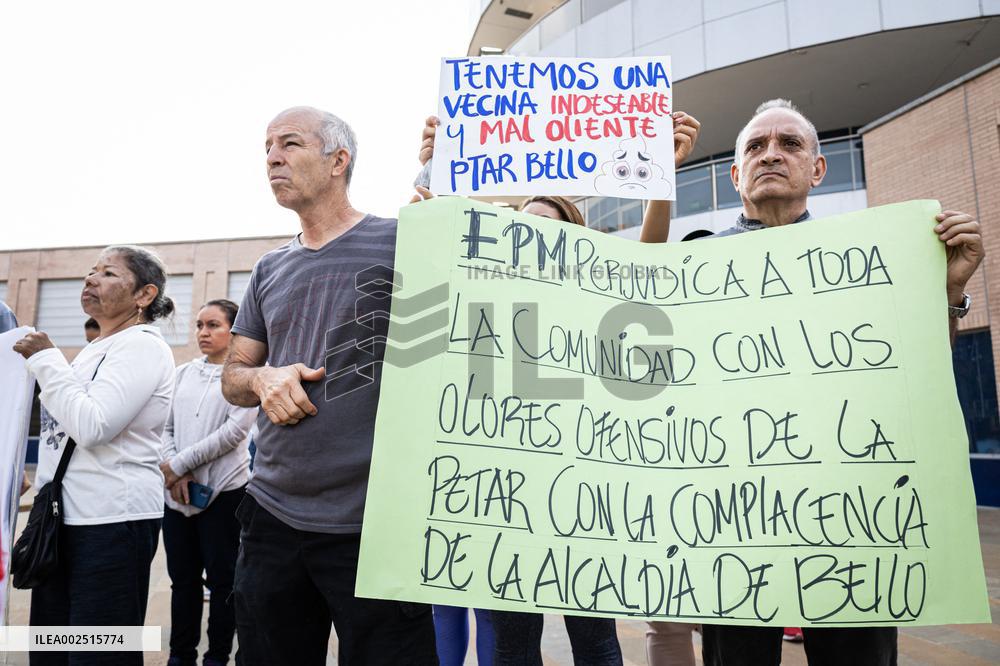 TENEMOS UNA
VECINA INDESEABLE
Y MAL OLIENTE
PTAR BELLO
EPM PERJUSICA A TODA
LA COMUNIDAD CON LOS
OLORES OFENSIVOS DE LA
PETAR CON LA COMPLACENCIA
DE LA ALCALDIA DE BELLO
IMAGE LINK GLOBAL
ILG
ILEA002515774